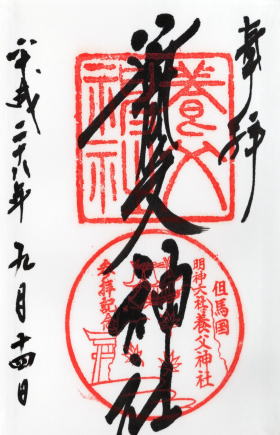 奉拝
養父神社
養父神社
但馬国
明神大社養父神社
参拝記念
平成二十八年九月十四日